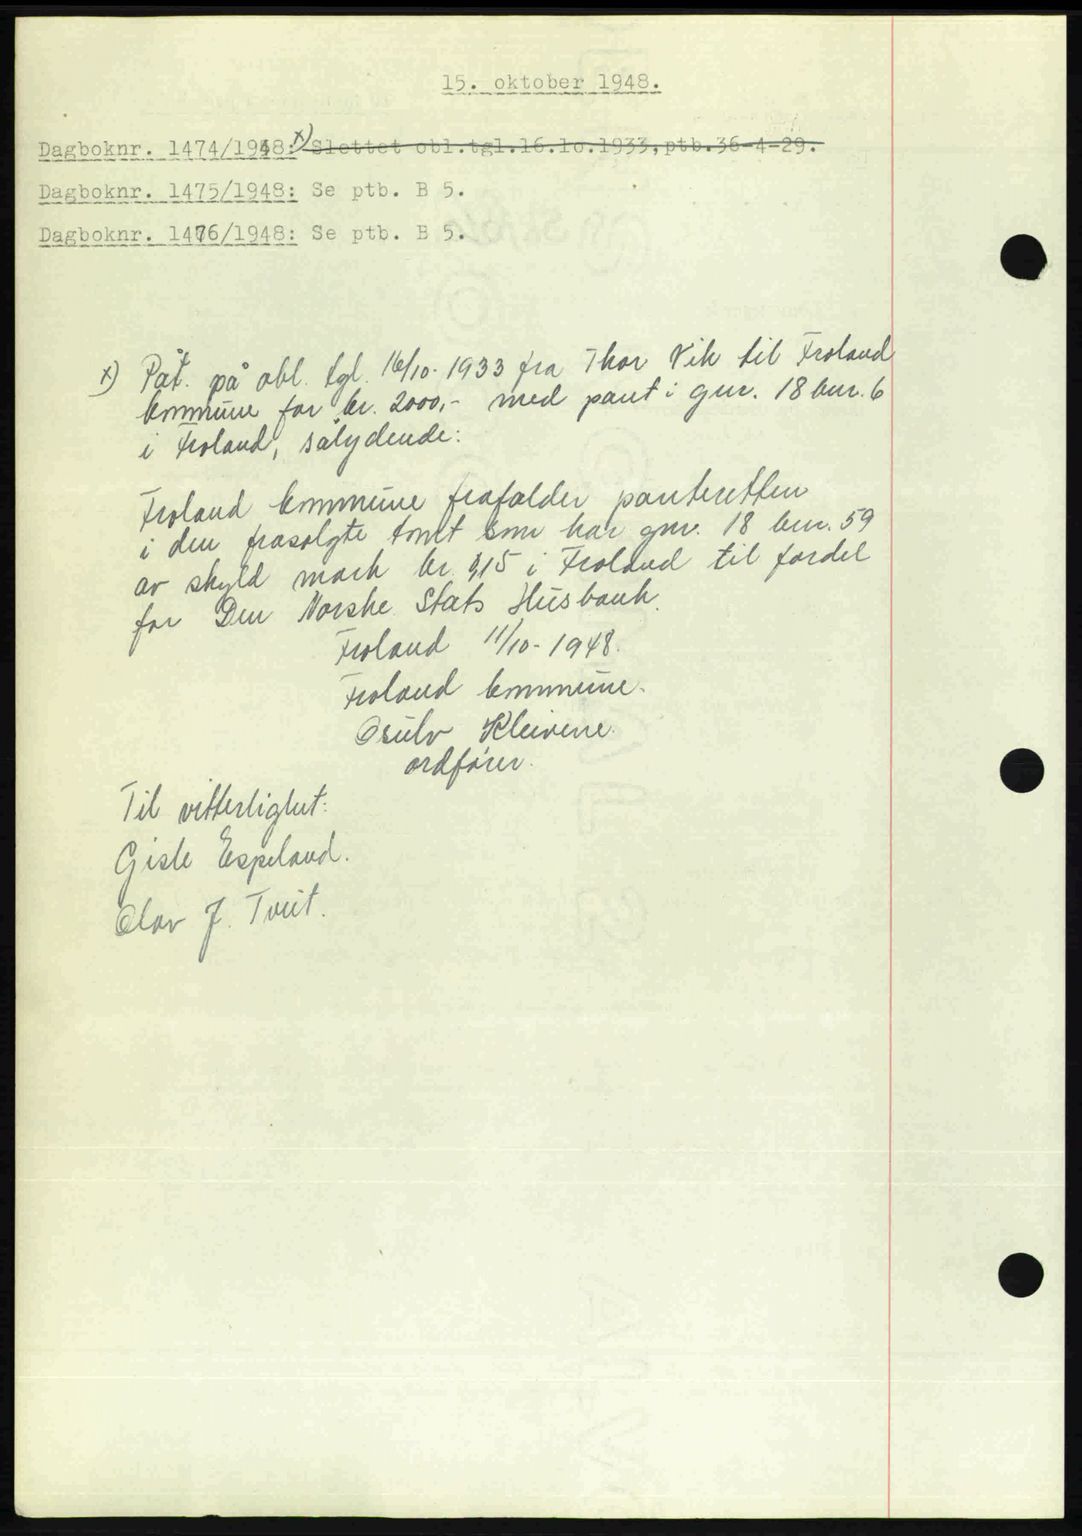 15. oktober 1948.
Dagboknr. 1474/1948: x) Slettet obl.tgl.16.1o.1933, ptb.36-4-29.
Dagboknr. 1475/1948: Se ptb. B 5.
Dagboknr. 1476/1948: Se ptb. B 5.
x) Påt. på obl. tgl. 16/10-1933 fra Thor Vik til Froland
kommune for kr. 2000,- med pant i gnr. 18 bnr. 6
i Froland, sålydende:
Froland kommune frafalder panteretten
i den frasolgte tomt som har gnr. 18 bnr. 59
av skyld mark kr. 0,15 i Froland til fordel
for Den Norske Stats Husbank.
Froland 11/10-1948.
Froland kommune.
Osulv Kleivene.
ordfører.
Til vitterlighet:
Gisle Espeland.
Olav J. Tveit.